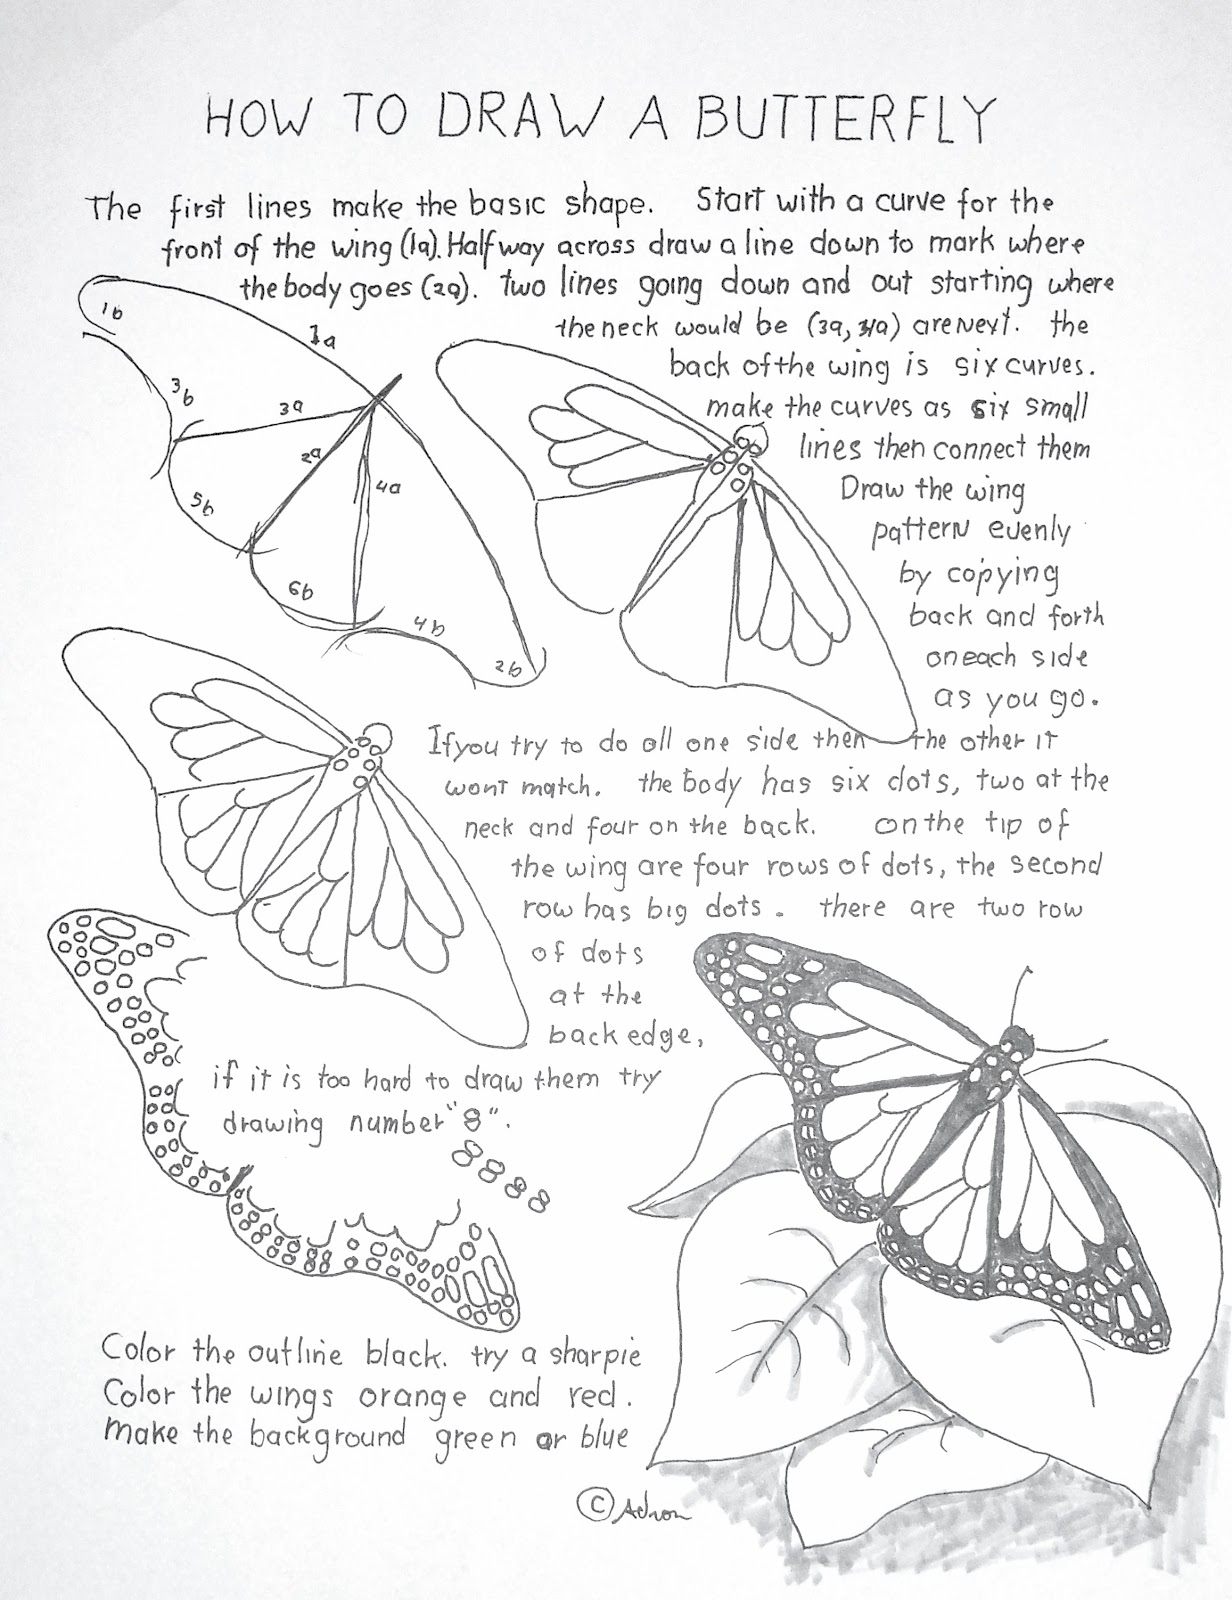 HOW TO DRAW A BUTTERFLY
The first lines make the basic shape. Start with a curve for the
front of the wing (1a). Half way across draw a line down to mark where
the body goes (2a). two lines going down and out starting where
the neck would be (3a, 4a) are Next. the
back of the wing is six curves.
make the curves as six small
lines then connect them
Draw the wing
pattern evenly
by copying
back and forth
on each side
as you go.
1b
1a
3b
3a
2a
4a
5b
6b
4b
2b
If you try to do all one side then the other it
wont match. the body has six dots, two at the
neck and four on the back. on the tip of
the wing are four rows of dots, the second
row has big dots. there are two row
of dots
at the
back edge,
if it is too hard to draw them try
drawing number "8".
8 8 8 8
Color the outline black. try a sharpie
Color the wings orange and red.
make the background green or blue
© Adron